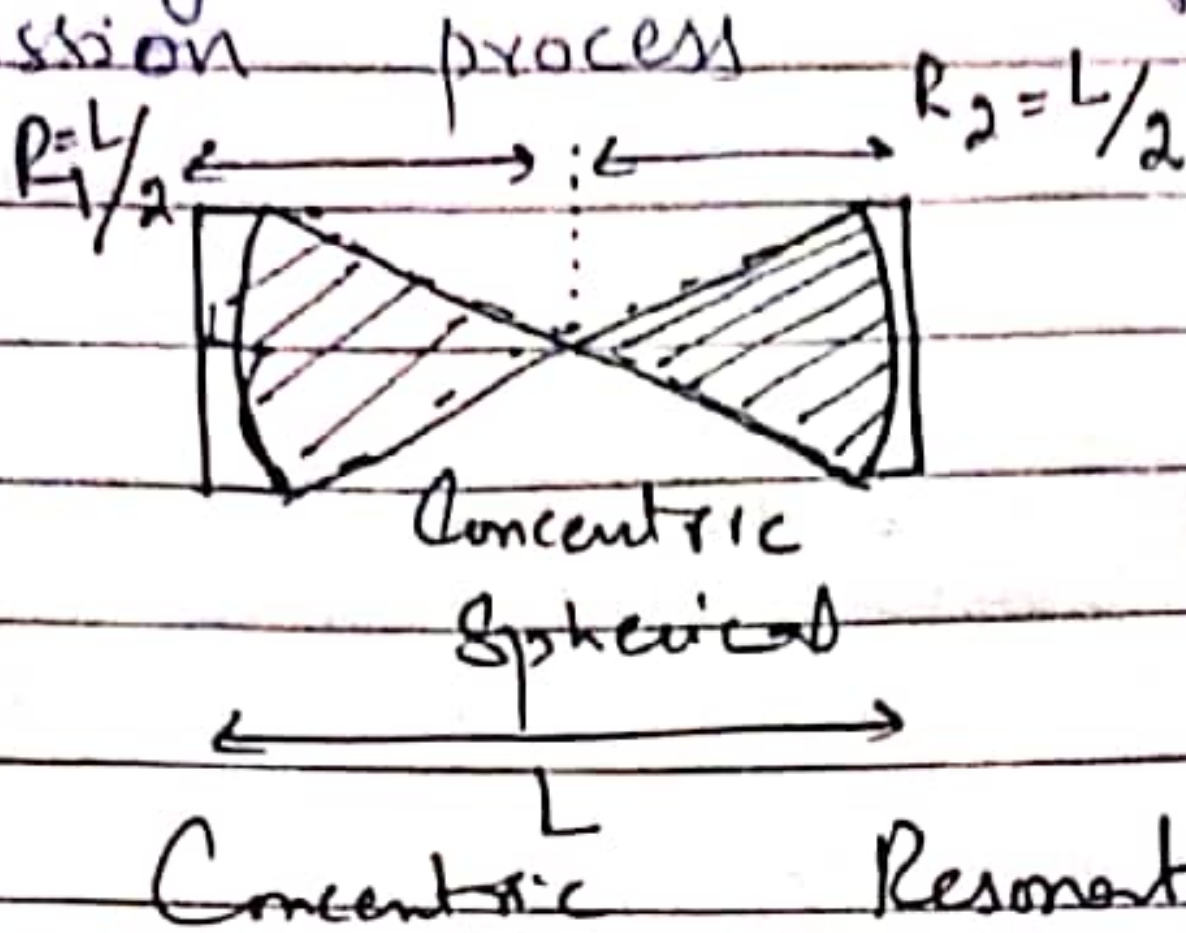 ssion process
R₁=L/2 R₂=L/2
Concentric
Spherical
L
Concentric Resonant